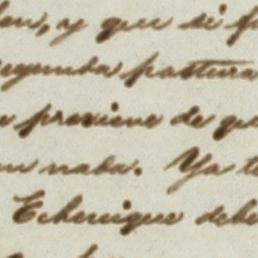 lan, y que si fa
segunda postura
e previene de que
en nada. Ya te
Echenique debe